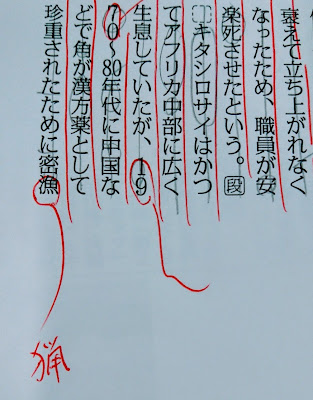 衰えて立ち上がれなく
なったため、職員が安
楽死させたという。段
キタシロサイはかつ
てアフリカ中部に広く
生息していたが、19
70〜80年代に中国な
どで角が漢方薬として
珍重されたために密漁
猟